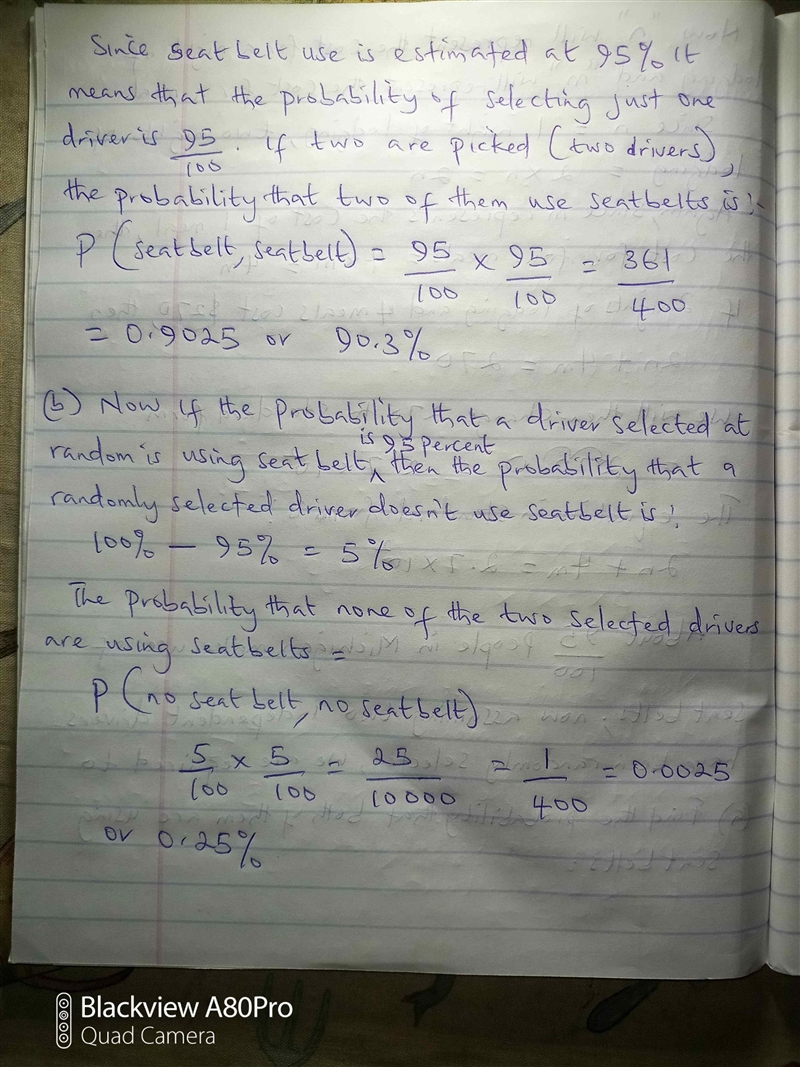 Since seatbelt use is estimated at 95% it
means that the probability of selecting just one
driver is 95/100. if two are picked (two drivers),
the probability that two of them use seatbelts is:-
P (seatbelt, seatbelt) = 95/100 x 95/100 = 361/400
= 0.9025 or 90.3%
(b) Now if the probability that a driver selected at
random is using seatbelt is 95 percent, then the probability that a
randomly selected driver doesn't use seatbelt is:
100% - 95% = 5%
The probability that none of the two selected drivers
are using seatbelts =
P (no seatbelt, no seatbelt)
5/100 x 5/100 = 25/10000 = 1/400 = 0.0025
or 0.25%
Blackview A80Pro
Quad Camera